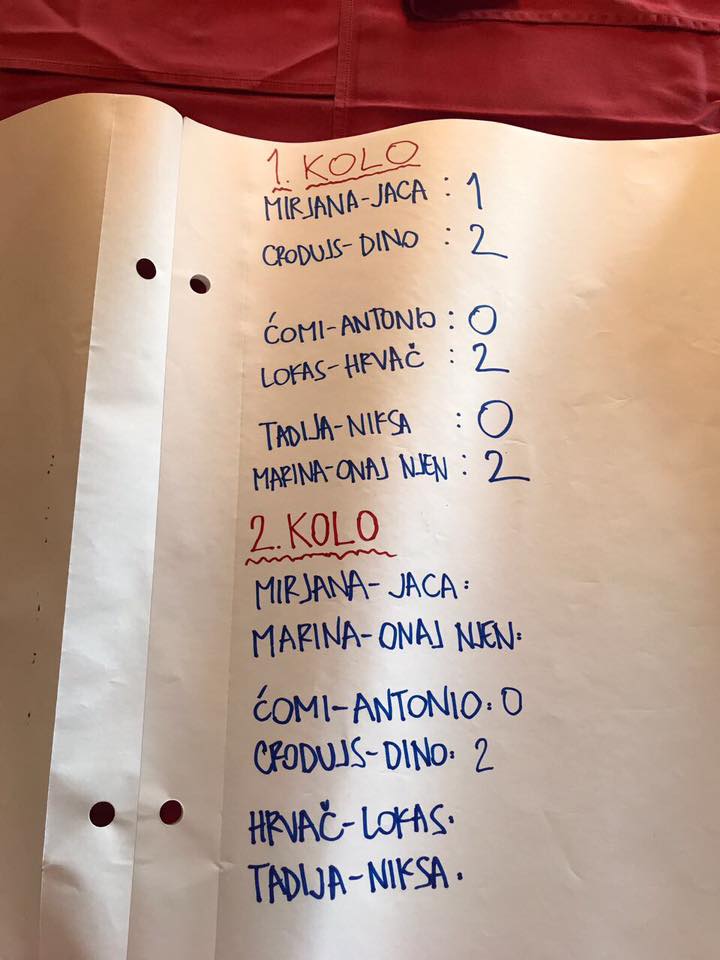 1. KOLO
MIRJANA-JACA : 1
CRODUJS-DINO : 2
ĆOMI-ANTONIO : 0
LOKAS-HRVAČ : 2
TADIJA-NIKSA : 0
MARINA-ONAJ NJEN : 2
2. KOLO
MIRJANA-JACA:
MARINA-ONAJ NJEN:
ĆOMI-ANTONIO: 0
CRODUJS-DINO: 2
HRVAČ-LOKAS.
TADIJA-NIKSA.